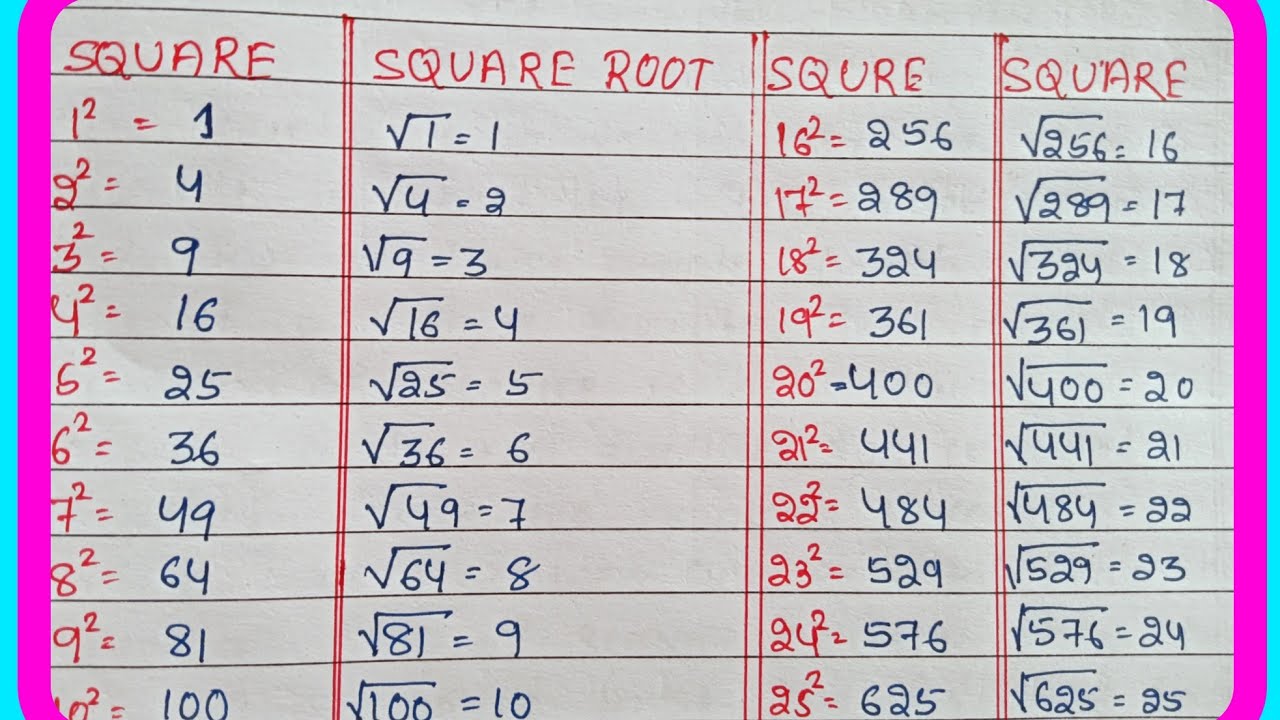 SQUARE SQUARE ROOT SQURE SQUARE
1² = 1 √1 = 1 16² = 256 √256 = 16
2² = 4 √4 = 2 17² = 289 √289 = 17
3² = 9 √9 = 3 18² = 324 √324 = 18
4² = 16 √16 = 4 19² = 361 √361 = 19
5² = 25 √25 = 5 20² = 400 √400 = 20
6² = 36 √36 = 6 21² = 441 √441 = 21
7² = 49 √49 = 7 22² = 484 √484 = 22
8² = 64 √64 = 8 23² = 529 √529 = 23
9² = 81 √81 = 9 24² = 576 √576 = 24
10² = 100 √100 = 10 25² = 625 √625 = 25